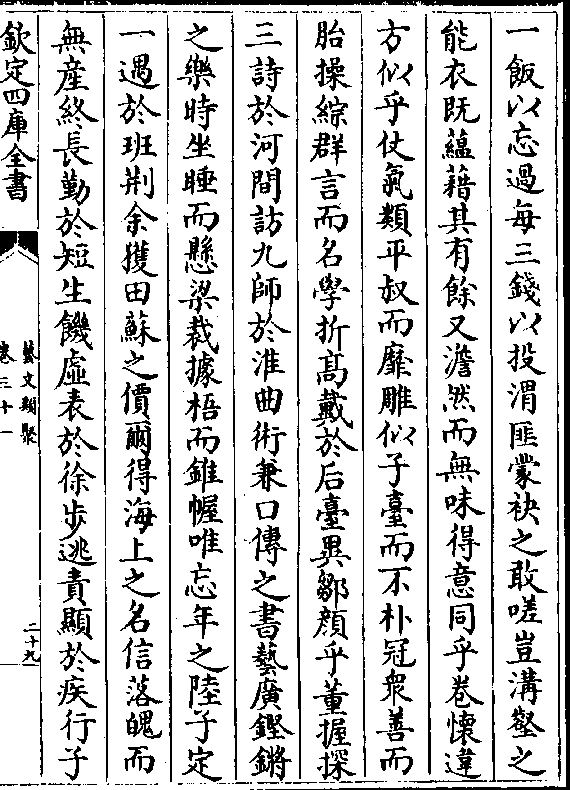 一飯以忘過每三錢以投渭匪蒙袂之敢嗟豈溝壑之
能衣既蘊藉其有餘又澹然而無味得意同乎卷懷違
方似乎仗氣類平叔而靡雕似子臺而不朴冠衆善而
胎操綜群言而名學折髙戴於后臺異鄒顔乎董握探
三詩於河間訪九師於淮曲術兼口傳之書藝廣鏗鏘
之樂時坐睡而懸梁裁據梧而錐幄唯忘年之陸子定
一遇於班荆余獲田蘇之價爾得海上之名信落魄而
無産終長勤於短生饑虛表於徐步逃責顯於疾行子
欽定四庫全書
藝文類聚
卷三十一
二十九